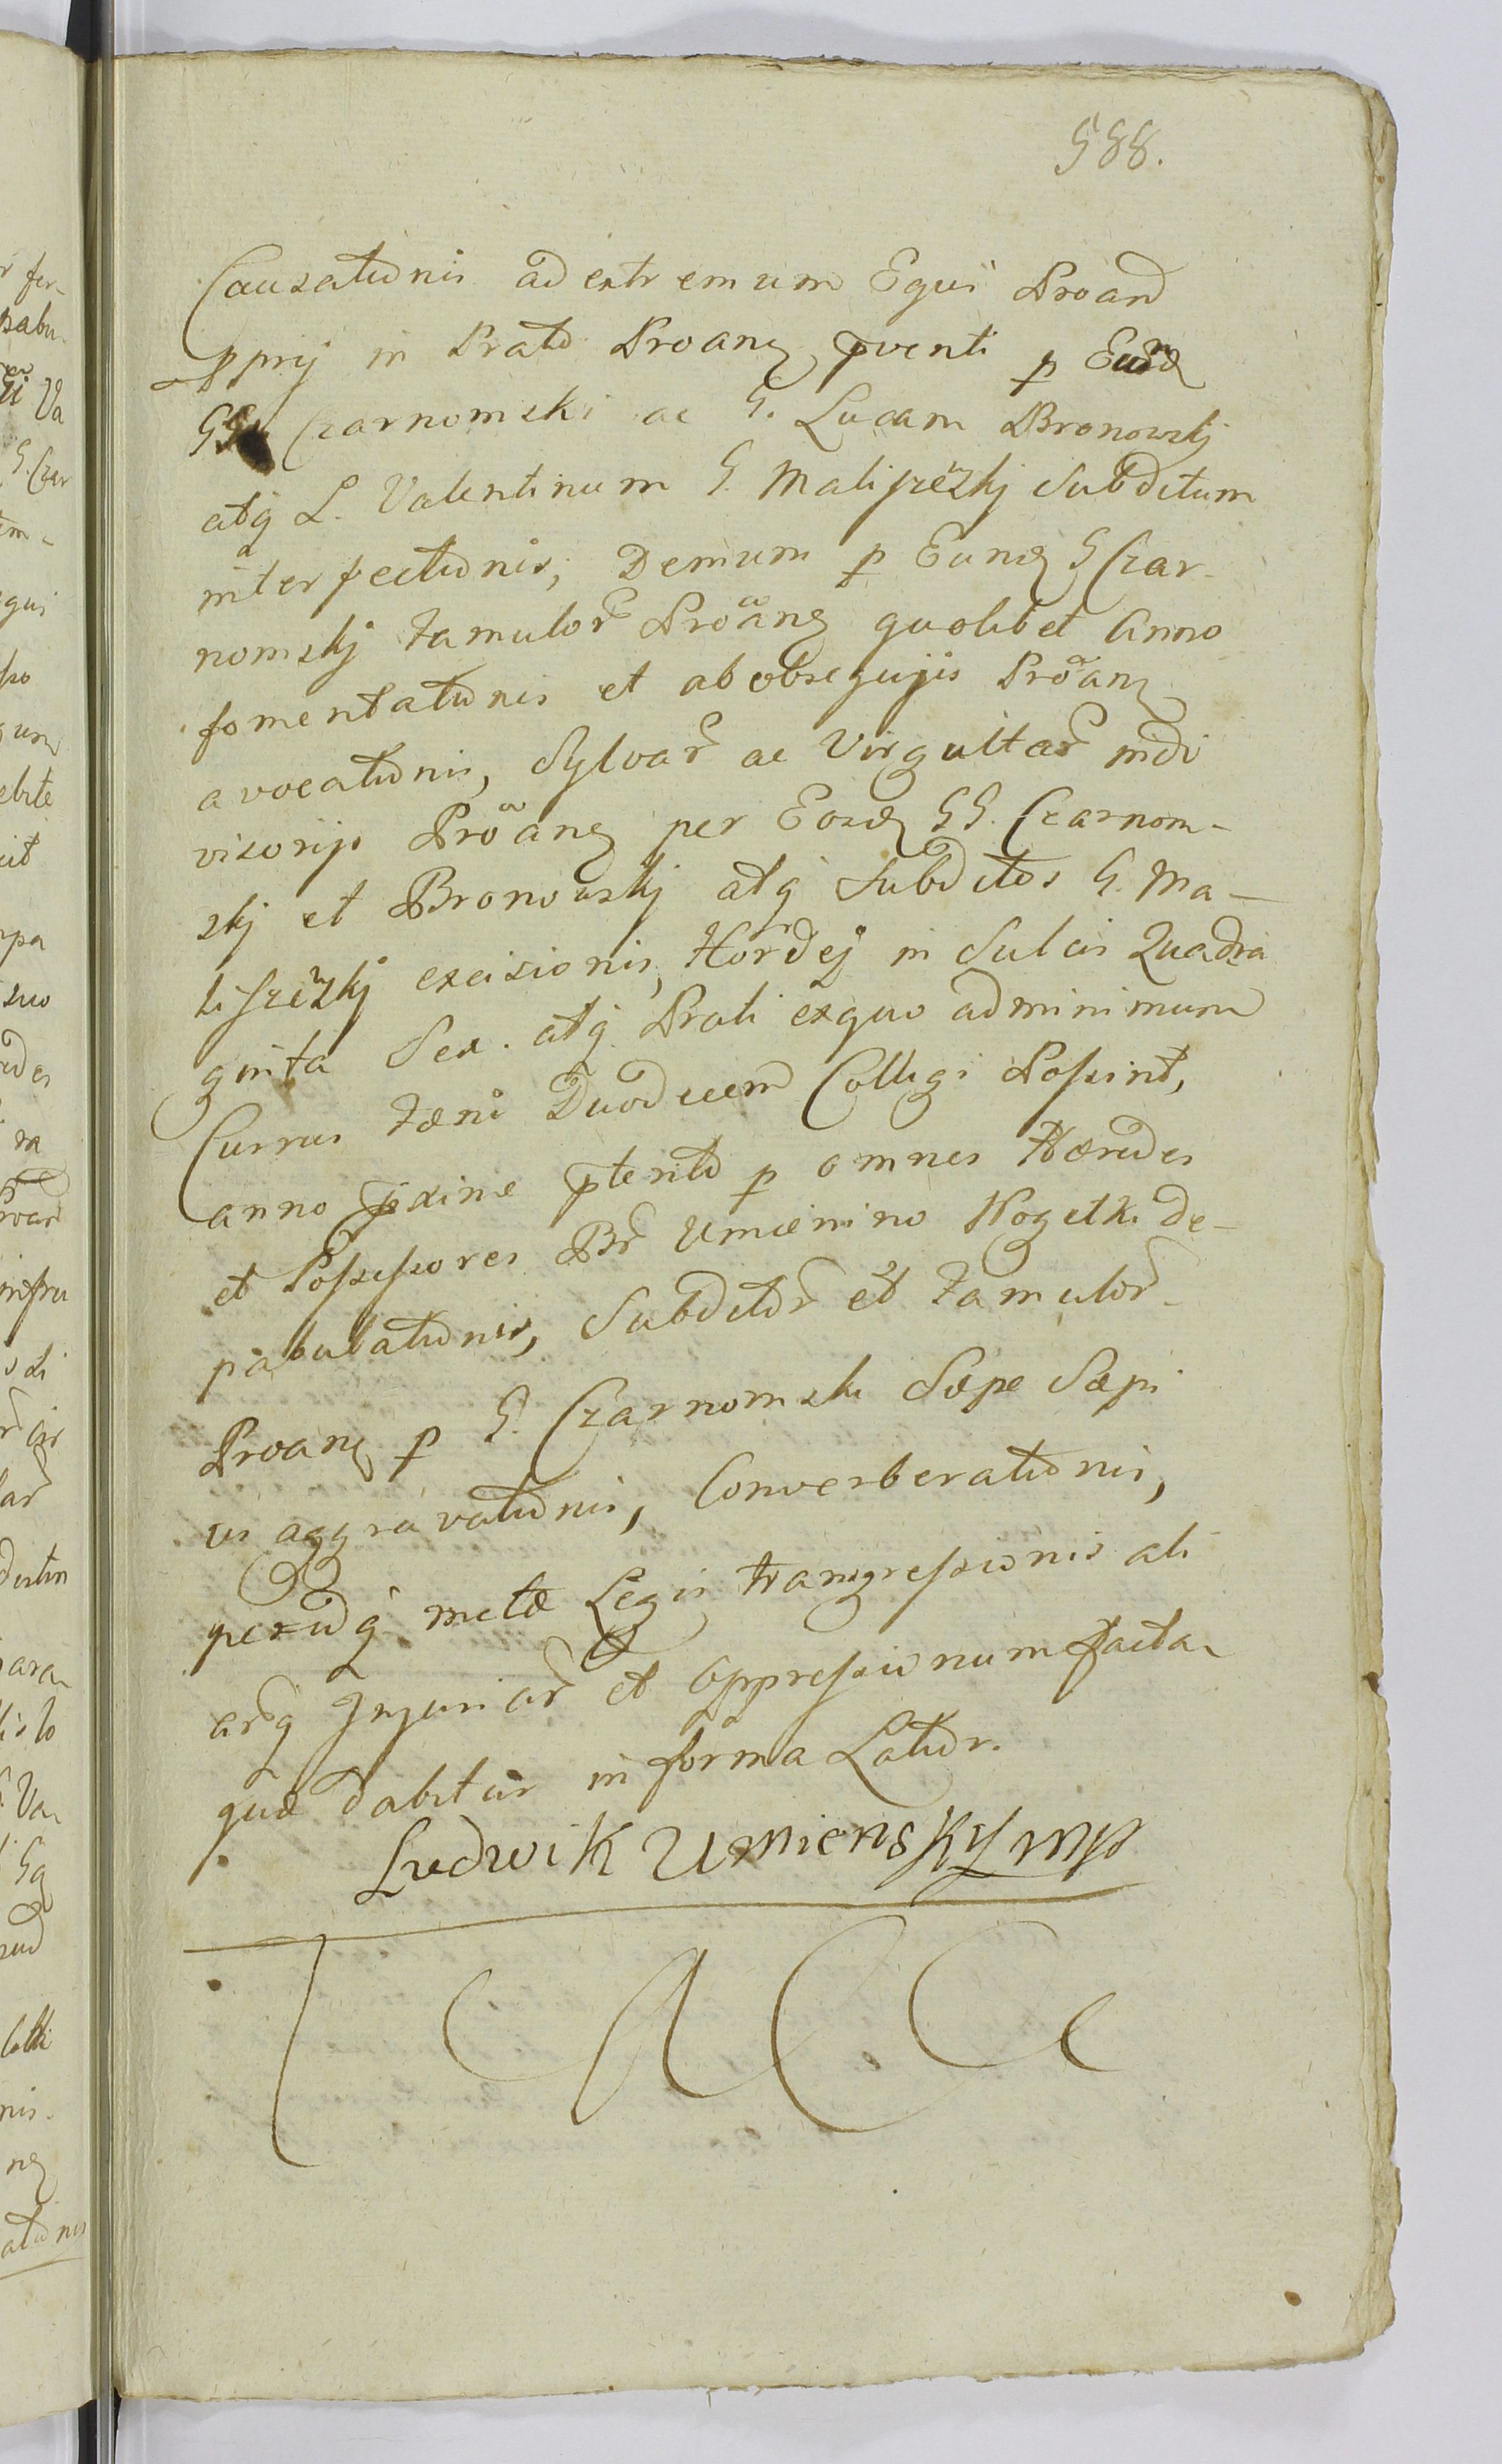 588.
Causationis ad extremum Equi Proand
pprij in Prato Proanꝫ pventi p Eund
GG Czarnomski ac G. Lucam Bronowskj
atq L. Valentinum G. Maliszewskj Subditum
interfectionis, Demum p Eundꝫ G Czar-
nomskj Famulor Proanꝫ quolibet Anno
fomentationis et ab obsequijs Proanꝫ
avocationis, Sylvar ac Virgultar indi
visorijs Proanꝫ per Eosdꝫ GG. Czarnom-
skj et Bronowskj atq Subditos G. Ma-
liszewskj excisionis, Hordej in Sulcis Quadra
ginta Sex. atq Prati ex quo ad minimum
Currus Fæni Duodecem Colligi Possint,
anno pxime pterito p omnes Hæredes
et Possessores Br Umienino Rogetki de-
pabulationis, Subditor et Famulor
Proanꝫ p G. Czarnomski Sæpe Sæpi
us aggravationis, Converberationis,
perindq metæ Legis transgressionis ali
arq Injuriar et oppressionum facta
quæ dabitur in forma Latior.
Ludwik Umienskj mp